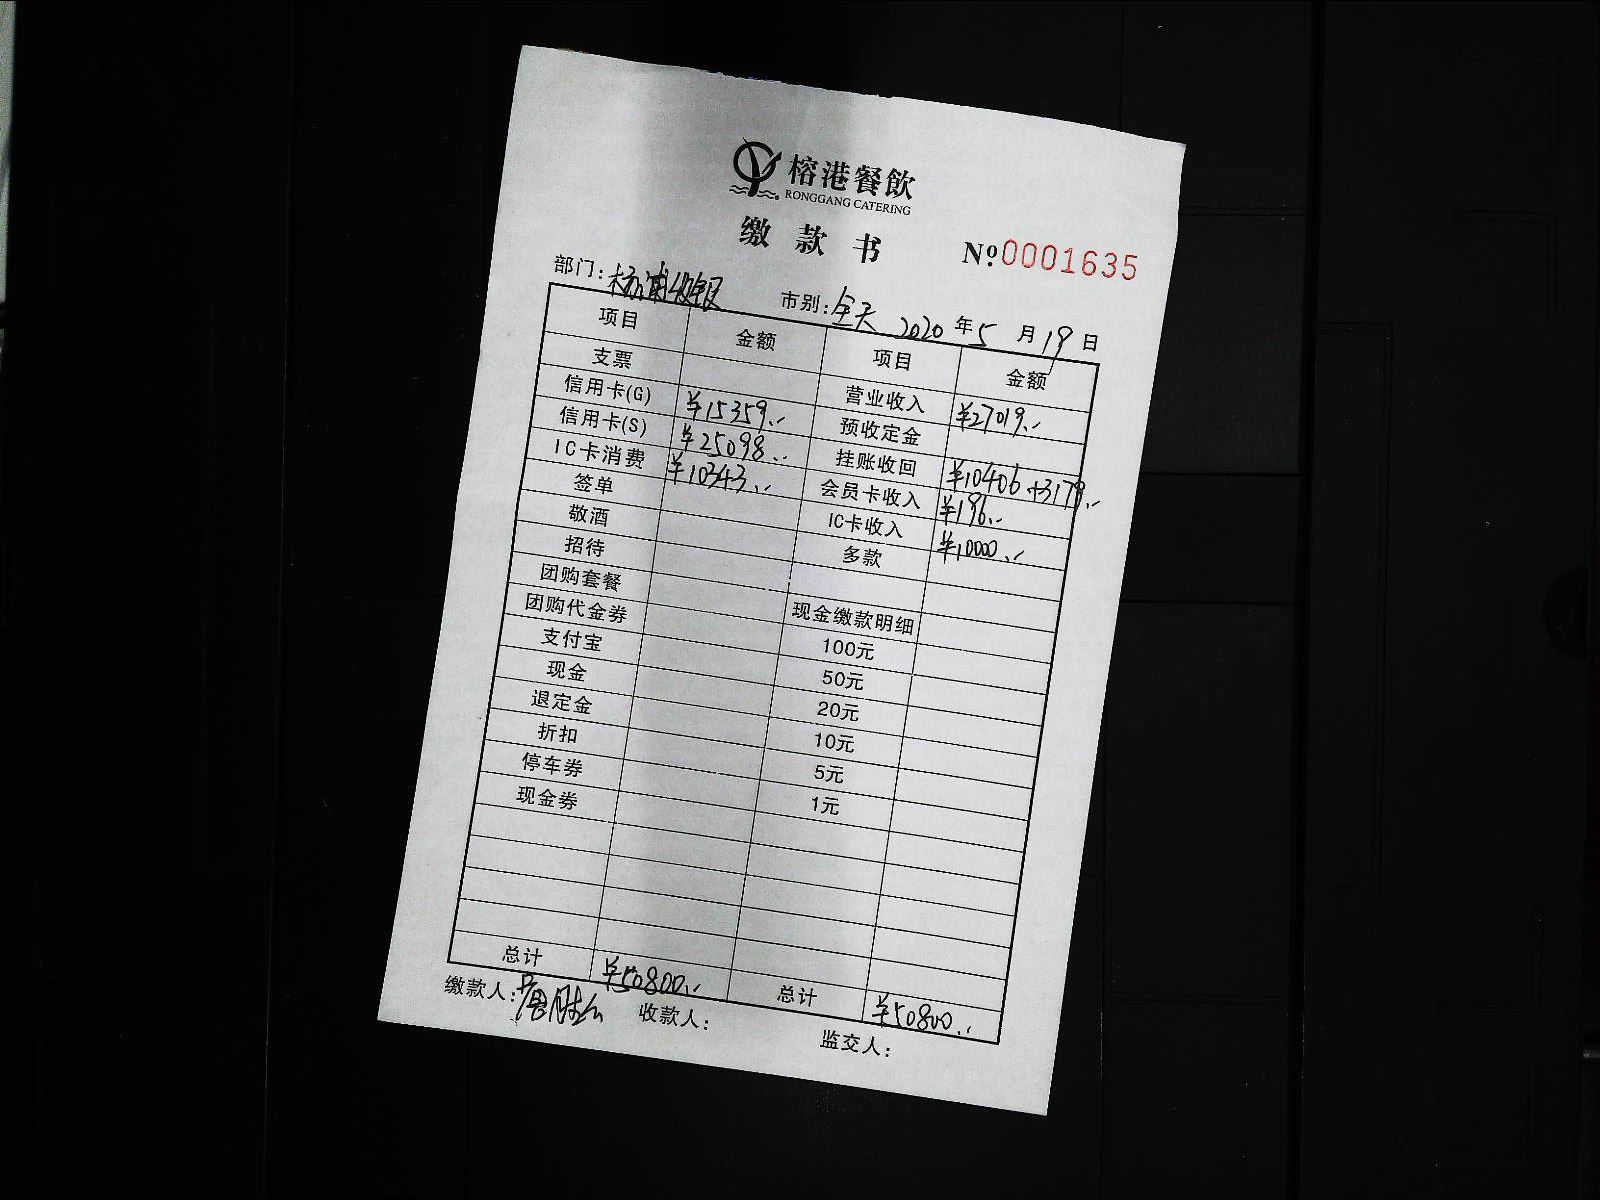 榕港餐飲
RONGGANG CATERING
缴款书 Nº0001635
部门:杨浦收银 市别:全天 2020年5月19日
项目 金额 项目 金额
支票 营业收入 ¥27019.-
信用卡(G) ¥15359.- 预收定金
信用卡(S) ¥25098.- 挂账收回 ¥10406.+3179.-
IC卡消费 ¥10343.- 会员卡收入 ¥196.-
签单 IC卡收入 ¥10000.-
敬酒 多款
招待
团购套餐 现金缴款明细
团购代金券 100元
支付宝 50元
现金 20元
退定金 10元
折扣 5元
停车券 1元
现金券
总计 ¥50800.- 总计 ¥50800.-
缴款人: 收款人: 监交人: